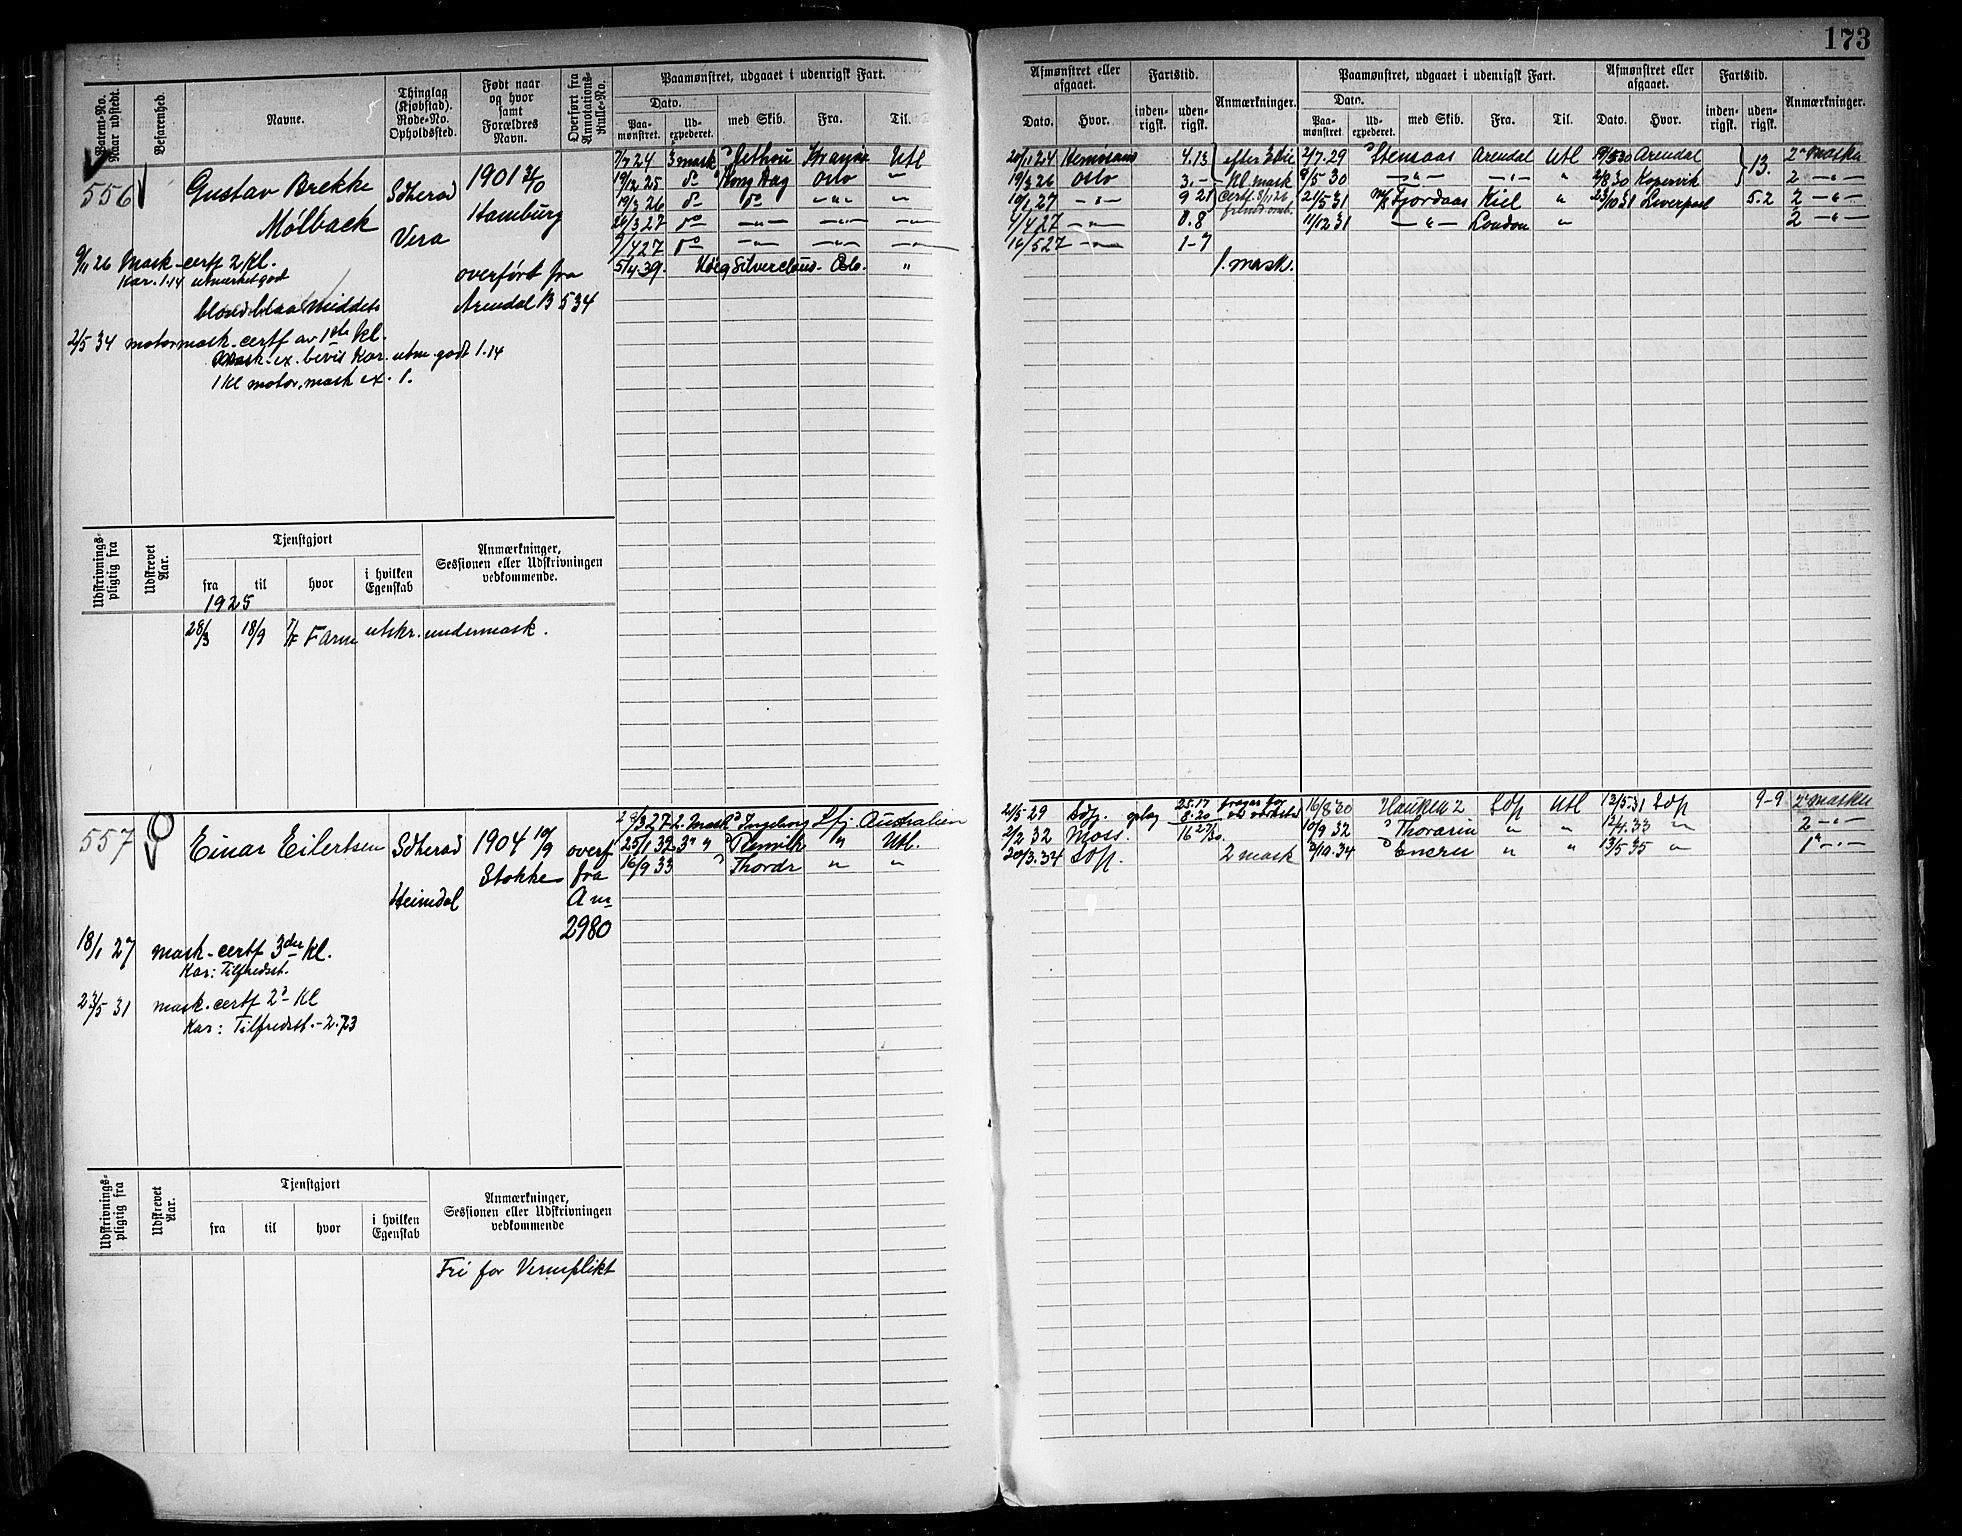 173
Patent-No. Naar udstedt.
Befarenhed.
Navne.
Thinglag (Kjøbstad). Rode-No. Opholdssted.
Født naar og hvor samt Forældres Navn.
Overført fra Annotations-Rulle-No.
Paamønstret, udgaaet i udenrigsk Fart.
Dato.
Paamønstret.
Udexpederet.
med Skib.
Fra.
Til.
Afmønstret eller afgaaet.
Dato.
Hvor.
Fartstid.
inden-rigsk.
uden-rigsk.
Anmærkninger.
Paamønstret, udgaaet i udenrigsk Fart.
Dato.
Paamønstret.
Udexpederet.
med Skib.
Fra.
Til.
Afmønstret eller afgaaet.
Dato.
Hvor.
Fartstid.
inden-rigsk.
uden-rigsk.
Anmærkninger.
556
Gustav Brekke
Mølback
Sdherad
Vera
1901
Hamburg
overført fra
Arendal B 534
9/11 26 Mask-certf 2 Kl.
Kar. 1.14 utmerket godt
blond blaa Middels
2/5 34 motormask-certf av 1ste kl.
Mask-ex. bevis Kar. utm. godt 1.14
1 kl motor.mask ex. 1.
7/7 24 3 mask Jethou Utl
19/12 25 do Kong Dag Oslo "
19/3 26 do do
26/3 27 do
7/4 27 do
5/4 39. Høegh Silvercloud - Oslo. "
20/11 24 4.13 efter 3die
19/3 26 Oslo 3.- Kl. mask
10/1 27 9 21 Certf. 8/11 26
4/4 27 0.8
16/5 27 1-7
1. mask.
2/7.29 Stensaas Arendal Utl 19/5 30 Arendal 13. 2n Maskn
9/5 30 2/8 30 Kopervik 2
21/5 31 M/S Fjordaas Kiel " 23/10 31 Liverpool 5.2 2
11/12 31 London " 2
Udskrivnings-pligtig fra
Udskrevet Aar.
Tjenstgjort
fra
til
hvor
i hvilken Egenskab
Anmærkninger, Sessionen eller Udskrivningen vedkommende.
1925
28/3 18/9 Farm utskr. undermask.
557
Einar Eilertsen
Sdherad
Heimdal
1904 19/9
Stokke
overf
fra
Anr
2980
18/1 27 mask-certf 3die Kl.
Kar: Tilfredsst.
23/5 31 mask.certf 2n Kl
Kar: Tilfredsst.-2.73
3 27 2. Mask Ingeborg Sfj Australien
25/1 32 3" " " Utl.
16/9 33 " Thordr " "
21/5 29 Sdfj. oplag 25.17
8.20
2/2 32 Moss. 16 27/30.
20/3.34 Sdfj. 2 mask
16/8 30 Hauken 2 Sdfj Utl 12/5.31 Sdfj 9-9 2n Maskn
10/9 32 Thorarin " " 12/4.33 " 2
2/10.34 " " 13/5 35 " 1n
Udskrivnings-pligtig fra
Udskrevet Aar.
Tjenstgjort
fra
til
hvor
i hvilken Egenskab
Anmærkninger, Sessionen eller Udskrivningen vedkommende
Fri for Verneplikt